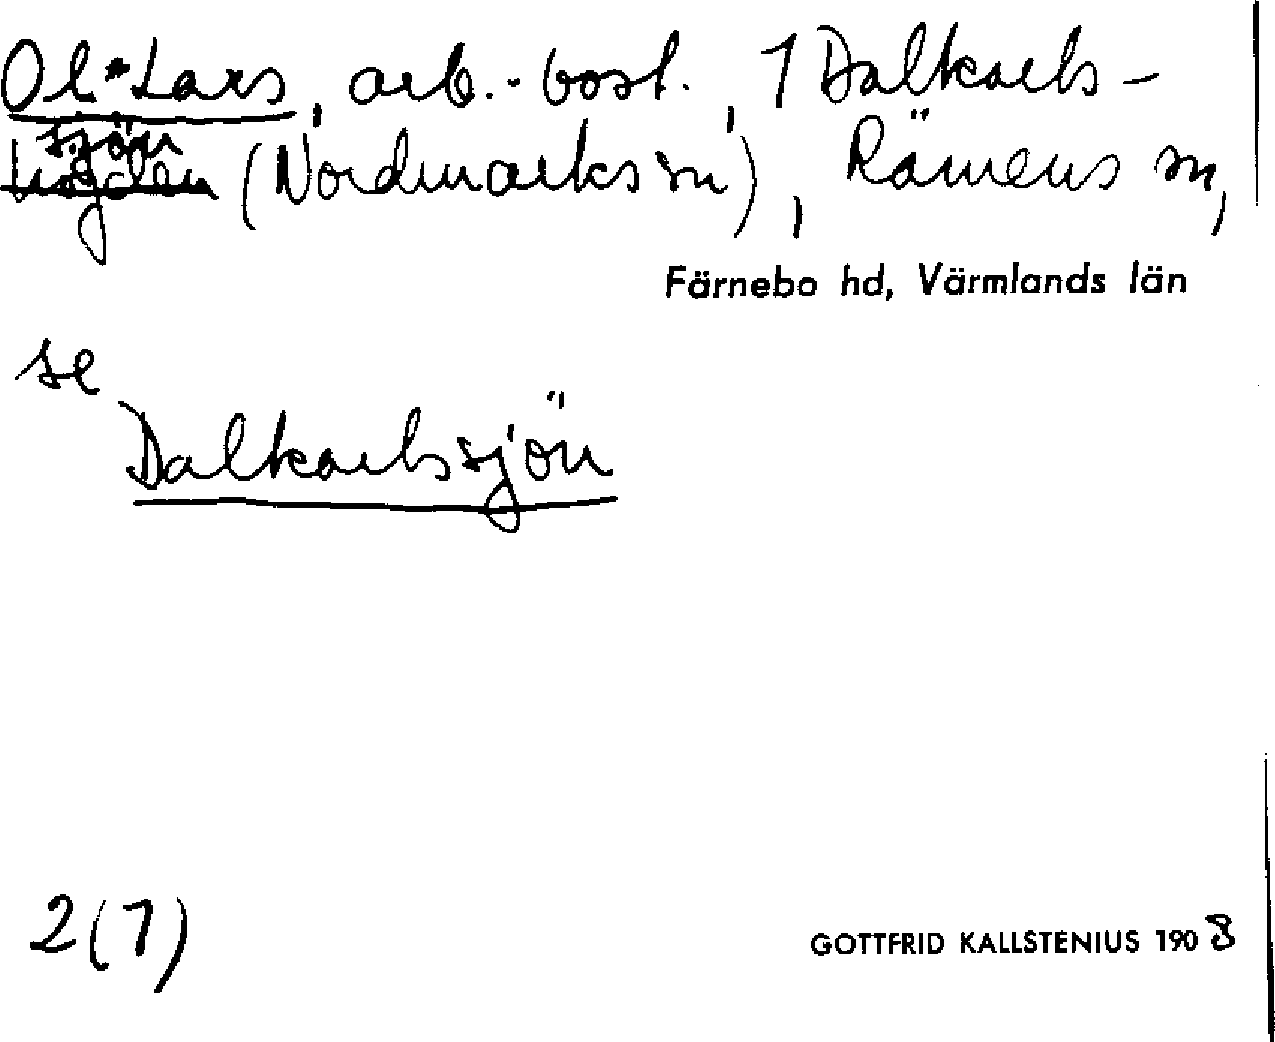 Ol-Lars, arb.-bost., 1 Dalkarls-
sjön
högden (Nordmarks sn), Rämens sn,
Färnebo hd, Värmlands län
se
Dalkarlssjön
2(1)
GOTTFRID KALLSTENIUS 1908